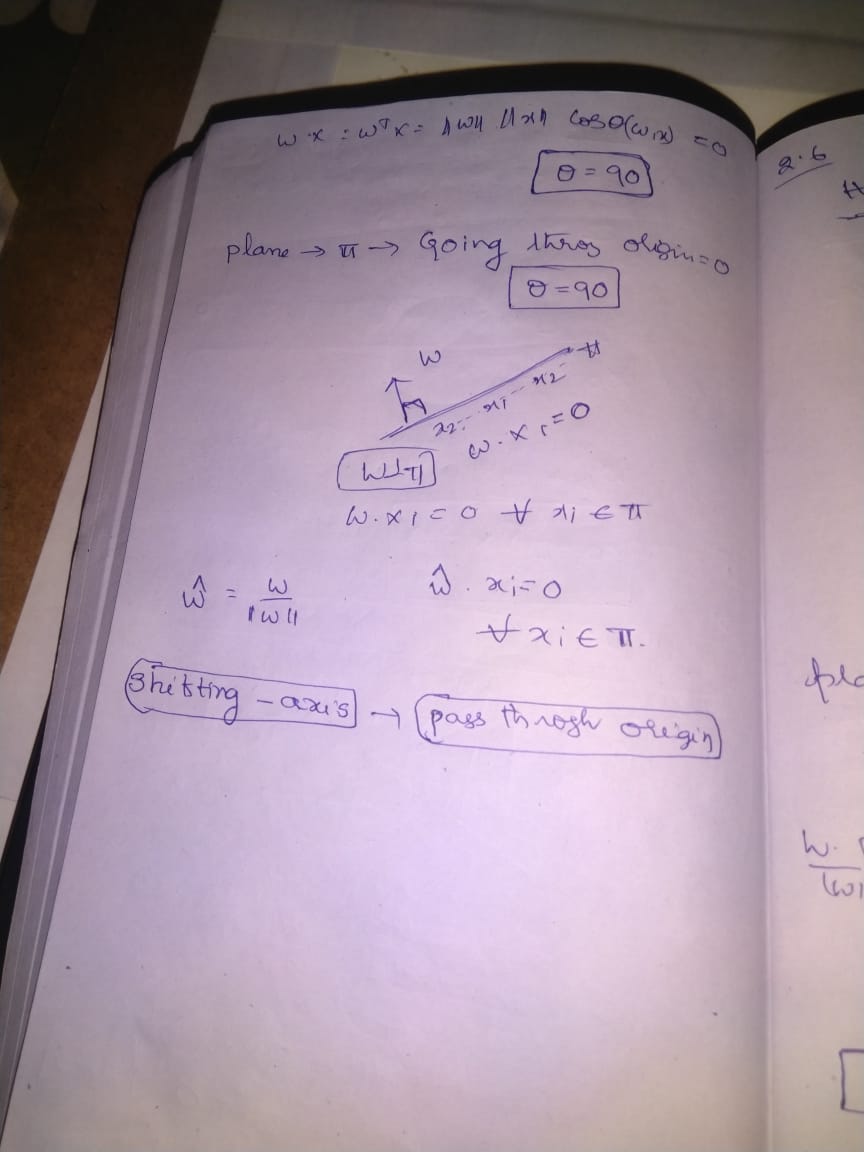 w·x = wᵀx = ||w|| ||x|| cosθ(w,x) = 0
θ = 90
plane → π → Going throg origin = 0
θ = 90
w
π
x2 x1 x2
w · x1 = 0
w⊥π
w·xi = 0 ∀ xi ∈ π
ŵ = w / ||w||
ŵ · xi = 0
∀ xi ∈ π.
Shifting - axis → pass throgh origin
2.6
H
pla
w.
||w||